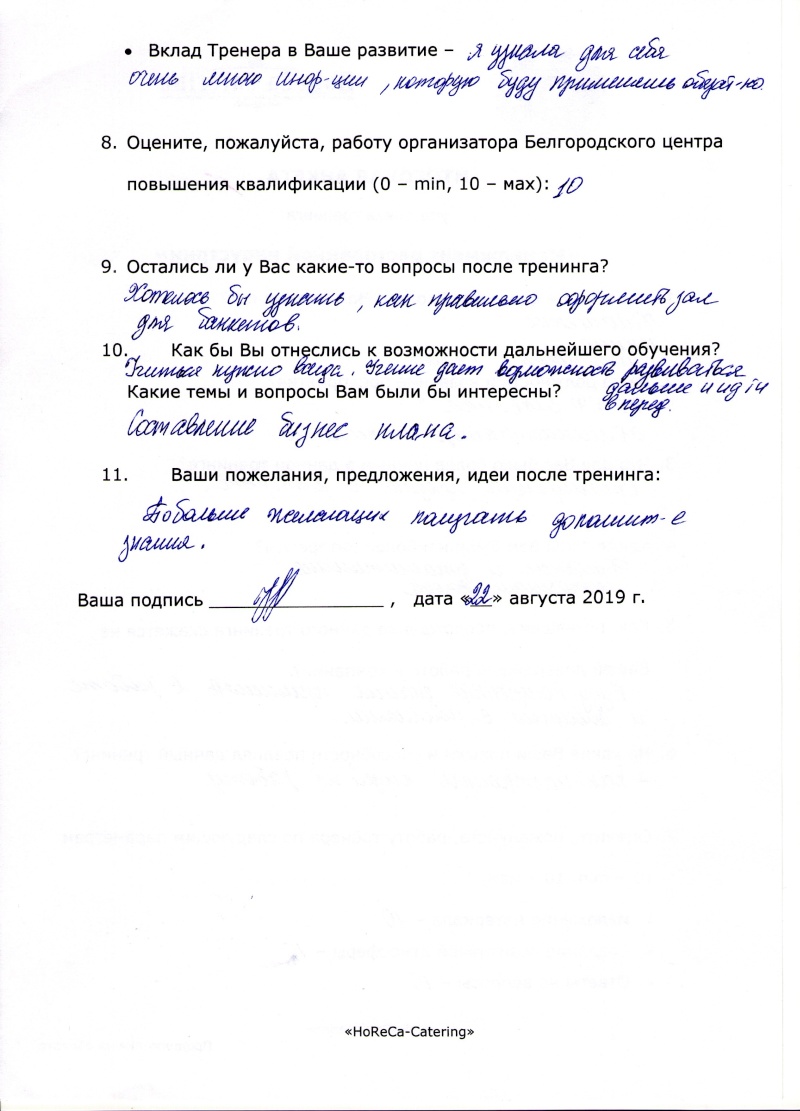 • Вклад Тренера в Ваше развитие – я узнала для себя
очень много инф-ции, которую буду применять обязат-но.
8. Оцените, пожалуйста, работу организатора Белгородского центра
повышения квалификации (0 – min, 10 – мах): 10
9. Остались ли у Вас какие-то вопросы после тренинга?
Хотелось бы узнать, как правильно оформить зал
для банкетов.
10. Как бы Вы отнеслись к возможности дальнейшего обучения?
Учиться нужно всегда. Учение дает возможность развиваться
Какие темы и вопросы Вам были бы интересны? дальше и идти
вперед.
Составление бизнес плана.
11. Ваши пожелания, предложения, идеи после тренинга:
Побольше желающих получать дополнит-е
знания.
Ваша подпись ________________ , дата «22» августа 2019 г.
«HoReCa-Catering»